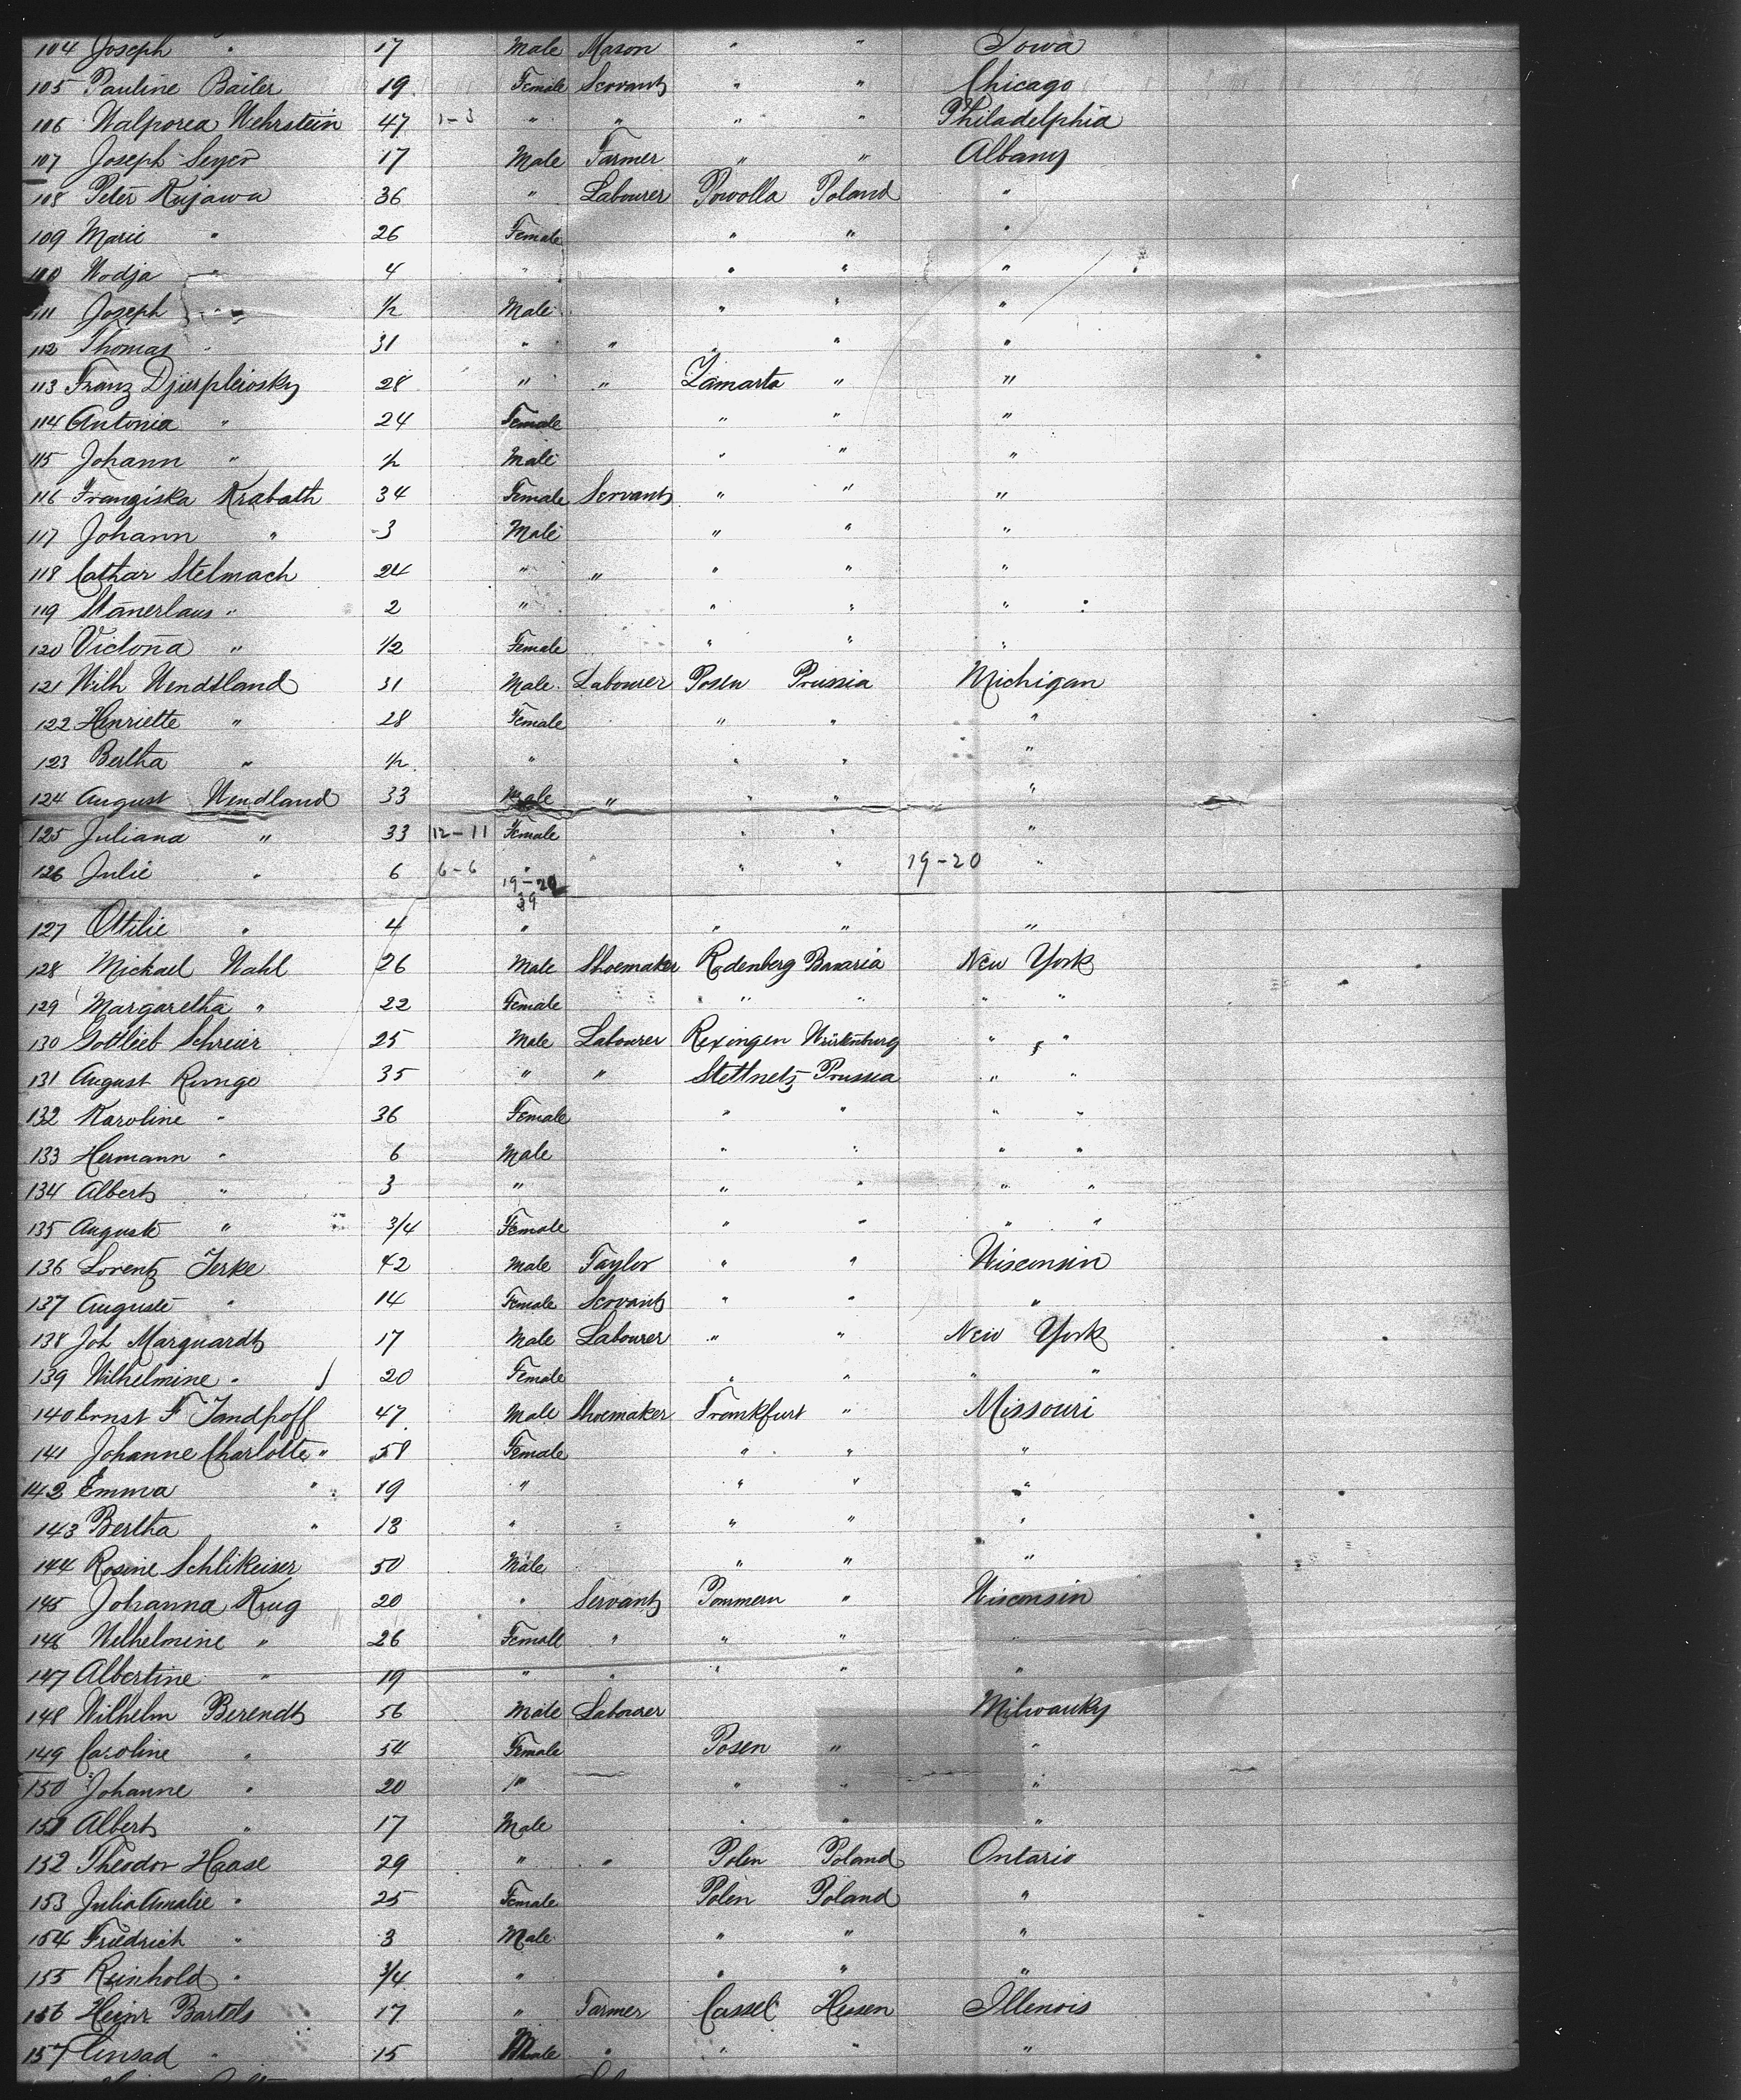 104 Joseph " 17 Male Mason " " Iowa
105 Pauline Bailer 19 Female Servant " " Chicago
106 Walporea Wehrstein 47 1-3 " " " " Philadelphia
107 Joseph Seyer 17 Male Farmer " " Albany
108 Peter Kujawa 36 " Labourer Powolla Poland "
109 Marie " 26 Female " " "
110 Wodja " 4 " " " "
111 Joseph " 1/2 Male " " "
112 Thomas " 31 " " " " "
113 Franz 28 " " Zamarta " "
114 Antonia " 24 Female " " "
115 Johann " 1/2 Male " " "
116 Franziska Krabath 34 Female Servant " " "
117 Johann " 3 Male " " "
118 Cathar Stelmach 24 " " " " "
119 Stanerlaus " 2 " " " "
120 Victoria " 1/2 Female " " "
121 Wilh Wendtland 31 Male Labourer Posen Prussia Michigan
122 Henriette " 28 Female " " "
123 Bertha " 1/2 " " " "
124 August Wendland 33 Male " " " "
125 Juliana " 33 12-11 Female " " "
126 Julie " 6 6-6 " " " 19-20 "
19-20
39
127 Ottilie " 4 " " " "
128 Michael Wahl 26 Male Shoemaker Rodenberg Bavaria New York
129 Margaretha " 22 Female " " " "
130 Gottlieb Schreier 25 Male Labourer Rexingen Würtenburg " "
131 August Runge 35 " " Stettnetz Prussia " "
132 Karoline " 36 Female " " " "
133 Hermann " 6 Male " " " "
134 Albert " 3 " " " " "
135 Auguste " 3/4 Female " " " "
136 Lorentz Jerke 42 Male Taylor " " Wisconsin
137 Auguste " 14 Female Servant " " "
138 Joh Marquardt 17 Male Labourer " " New York
139 Wilhelmine " 20 Female " " " "
140 Ernst F Jandhoff 47 Male Shoemaker Frankfurt " Missouri
141 Johanne Charlotte " 58 Female " " "
142 Emma " 19 " " " "
143 Bertha " 13 " " " "
144 Rosine Schlikeiser 50 Male " " "
145 Johanna Krug 20 " Servant Pommern " Wisconsin
146 Wilhelmine " 26 Female " " "
147 Albertine " 19 " " " " "
148 Wilhelm Berendt 56 Male Labourer Milwauky
149 Caroline " 54 Female Posen " "
150 Johanne " 20 " " " "
151 Albert " 17 Male " " "
152 Theodor Haase 29 " " Polen Poland Ontario
153 Julia Amalie " 25 Female Polen Poland "
154 Friedrich " 3 Male " " "
155 Reinhold " 3/4 " " " "
156 Heinr Bartels 17 " Farmer Cassel Hessen Illenois
157 Consad " 15 Male " " " "